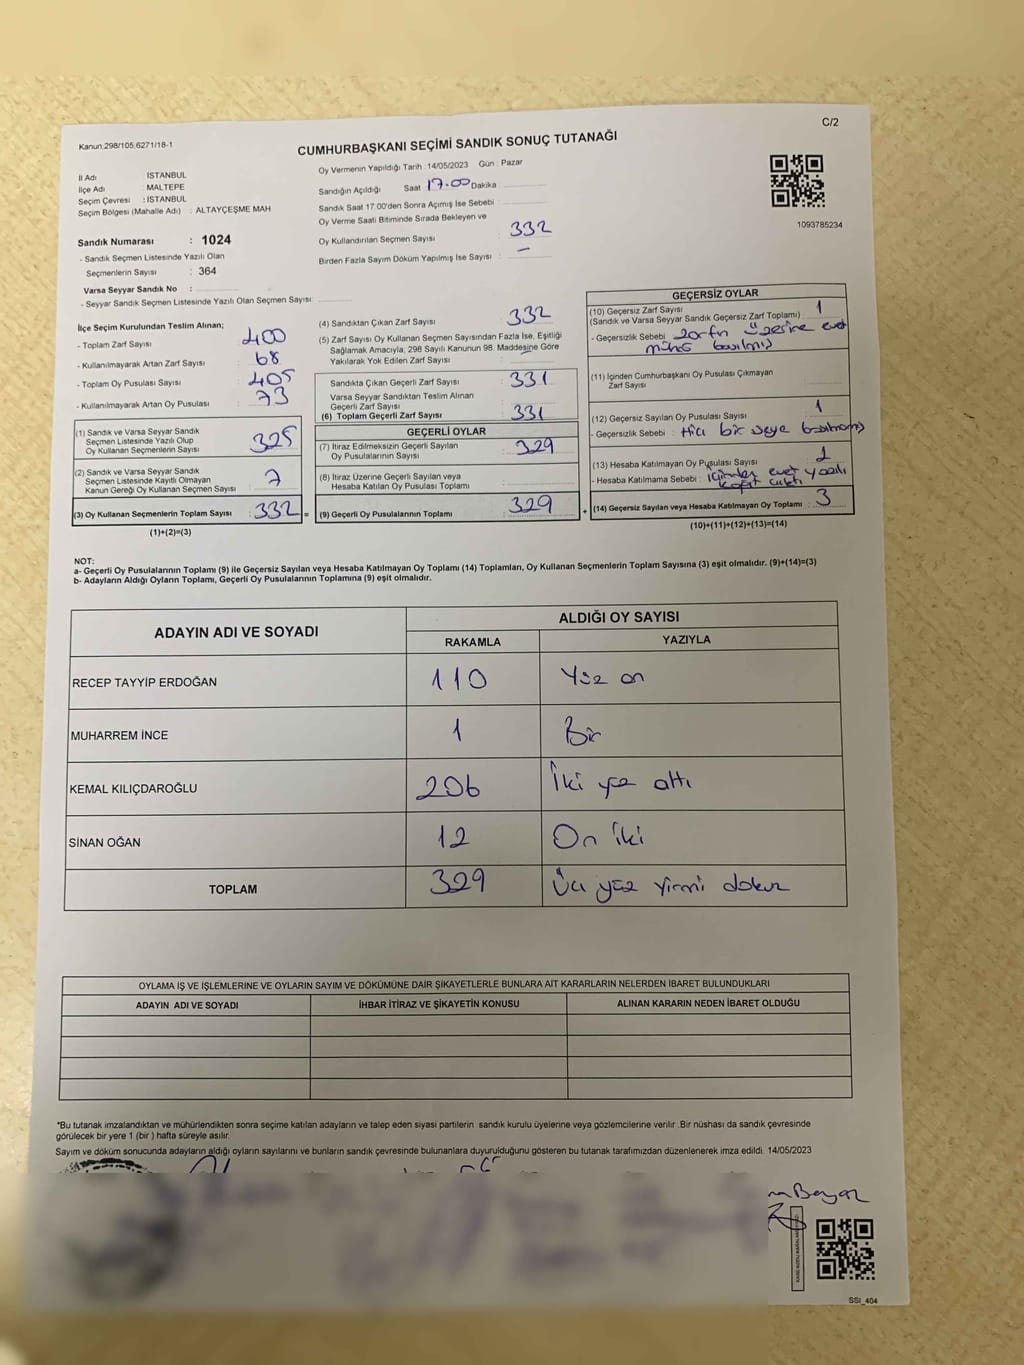 C/2
Kanun:298/105,6271/18-1
CUMHURBAŞKANI SEÇİMİ SANDIK SONUÇ TUTANAĞI
İl Adı : İSTANBUL
İlçe Adı : MALTEPE
Seçim Çevresi : İSTANBUL
Seçim Bölgesi (Mahalle Adı) : ALTAYÇEŞME MAH
Oy Vermenin Yapıldığı Tarih : 14/05/2023 Gün : Pazar
Sandığın Açıldığı Saat 17.00 Dakika :
Sandık Saat 17.00'den Sonra Açımış İse Sebebi :
Oy Verme Saati Bitiminde Sırada Bekleyen ve
Oy Kullandırılan Seçmen Sayısı : 332
Birden Fazla Sayım Döküm Yapılmış İse Sayısı : –
1093785234
Sandık Numarası : 1024
- Sandık Seçmen Listesinde Yazılı Olan
Seçmenlerin Sayısı : 364
Varsa Seyyar Sandık No :
- Seyyar Sandık Seçmen Listesinde Yazılı Olan Seçmen Sayısı:
İlçe Seçim Kurulundan Teslim Alınan;
- Toplam Zarf Sayısı : 400
- Kullanılmayarak Artan Zarf Sayısı : 68
- Toplam Oy Pusulası Sayısı : 405
- Kullanılmayarak Artan Oy Pusulası : 73
(1) Sandık ve Varsa Seyyar Sandık
Seçmen Listesinde Yazılı Olup
Oy Kullanan Seçmenlerin Sayısı : 325
(2) Sandık ve Varsa Seyyar Sandık
Seçmen Listesinde Kayıtlı Olmayan
Kanun Gereği Oy Kullanan Seçmen Sayısı : 7
(3) Oy Kullanan Seçmenlerin Toplam Sayısı : 332 =
(1)+(2)=(3)
(4) Sandıktan Çıkan Zarf Sayısı : 332
(5) Zarf Sayısı Oy Kullanan Seçmen Sayısından Fazla İse, Eşitliği
Sağlamak Amacıyla; 298 Sayılı Kanunun 98. Maddesine Göre
Yakılarak Yok Edilen Zarf Sayısı :
Sandıkta Çıkan Geçerli Zarf Sayısı : 331
Varsa Seyyar Sandıktan Teslim Alınan
Geçerli Zarf Sayısı :
(6) Toplam Geçerli Zarf Sayısı : 331
GEÇERLİ OYLAR
(7) İtiraz Edilmeksizin Geçerli Sayılan
Oy Pusulasının Sayısı : 329
(8) İtiraz Üzerine Geçerli Sayılan veya
Hesaba Katılan Oy Pusulası Toplamı :
(9) Geçerli Oy Pusulalarının Toplamı : 329 +
GEÇERSİZ OYLAR
(10) Geçersiz Zarf Sayısı : 1
(Sandık ve Varsa Seyyar Sandık Geçersiz Zarf Toplamı)
- Geçersizlik Sebebi : zarfın üzerine evet
mührü basılmış
(11) İçinden Cumhurbaşkanı Oy Pusulası Çıkmayan
Zarf Sayısı :
(12) Geçersiz Sayılan Oy Pusulası Sayısı : 1
- Geçersizlik Sebebi : Hiç bir şeye basılmamış
(13) Hesaba Katılmayan Oy Pusulası Sayısı : 1
- Hesaba Katılmama Sebebi : içinden evet yazılı
kağıt çıktı
(14) Geçersiz Sayılan veya Hesaba Katılmayan Oy Toplamı : 3
(10)+(11)+(12)+(13)=(14)
NOT:
a- Geçerli Oy Pusulalarının Toplamı (9) ile Geçersiz Sayılan veya Hesaba Katılmayan Oy Toplamı (14) Toplamları, Oy Kullanan Seçmenlerin Toplam Sayısına (3) eşit olmalıdır. (9)+(14)=(3)
b- Adayların Aldığı Oyların Toplamı, Geçerli Oy Pusulalarının Toplamına (9) eşit olmalıdır.
ADAYIN ADI VE SOYADI
ALDIĞI OY SAYISI
RAKAMLA YAZIYLA
RECEP TAYYİP ERDOĞAN 110 Yüz on
MUHARREM İNCE 1 Bir
KEMAL KILIÇDAROĞLU 206 İki yüz altı
SİNAN OĞAN 12 On iki
TOPLAM 329 Üç yüz yirmi dokuz
OYLAMA İŞ VE İŞLEMLERİNE VE OYLARIN SAYIM VE DÖKÜMÜNE DAİR ŞİKAYETLERLE BUNLARA AİT KARARLARIN NELERDEN İBARET BULUNDUKLARI
ADAYIN ADI VE SOYADI İHBAR İTİRAZ VE ŞİKAYETİN KONUSU ALINAN KARARIN NEDEN İBARET OLDUĞU
*Bu tutanak imzalandıktan ve mühürlendikten sonra seçime katılan adayların ve talep eden siyasi partilerin sandık kurulu üyelerine veya gözlemcilerine verilir .Bir nüshası da sandık çevresinde
görülecek bir yere 1 (bir ) hafta süreyle asılır.
Sayım ve döküm sonucunda adayların aldığı oyların sayılarını ve bunların sandık çevresinde bulunanlara duyurulduğunu gösteren bu tutanak tarafımızdan düzenlenerek imza edildi. 14/05/2023
SSI_404